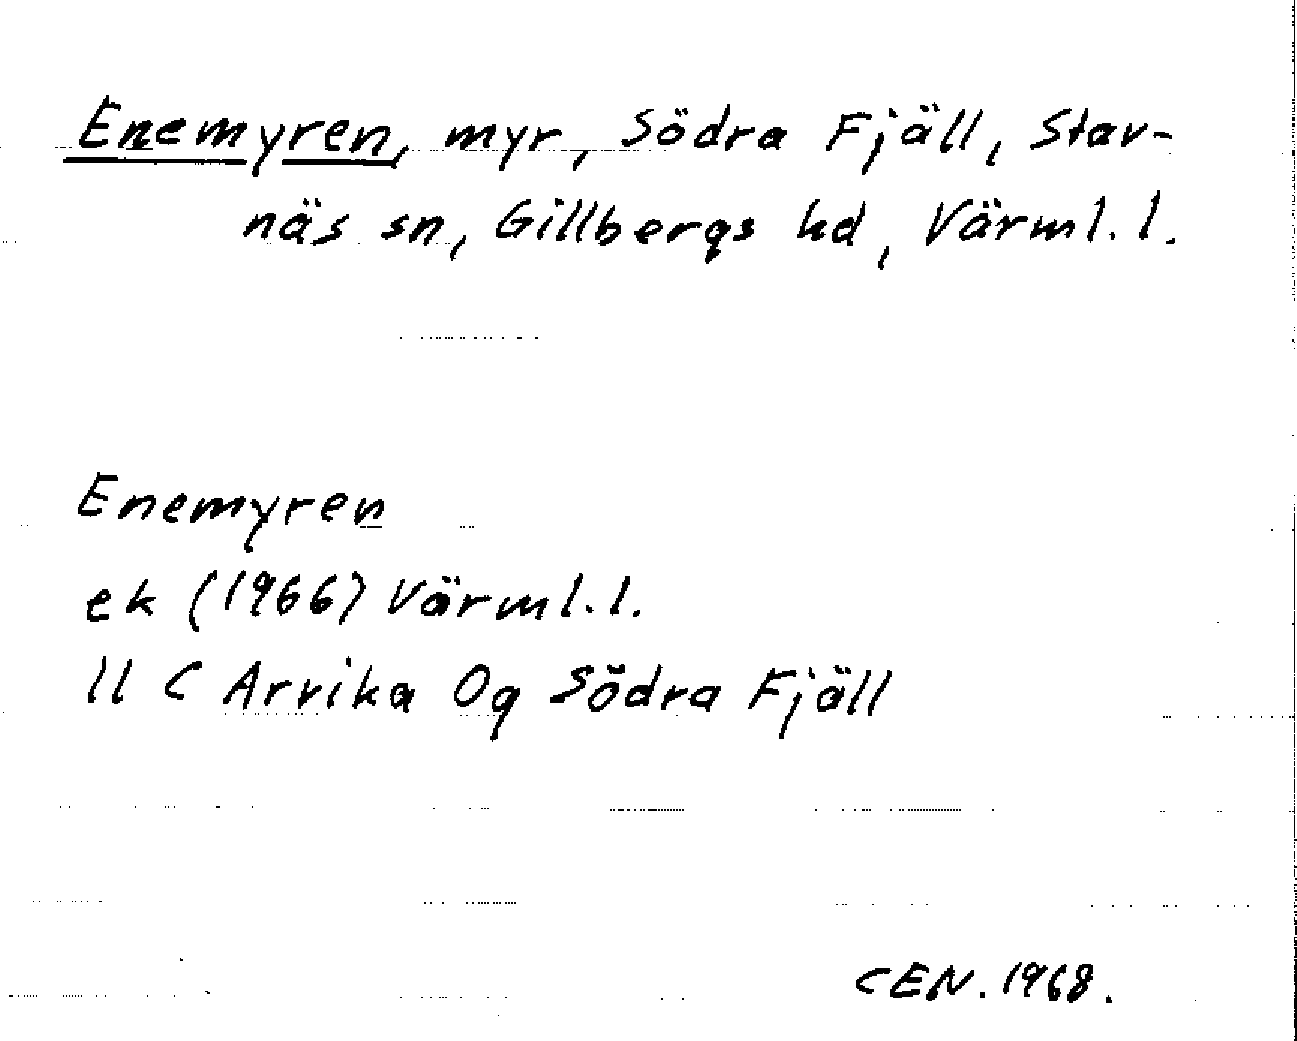 Enemyren, myr, Södra Fjäll, Stav-
näs sn, Gillbergs hd, Värml. l.
Enemyren
ek (1966) Värml. l.
11 C Arvika 0g Södra Fjäll
CEN. 1968.